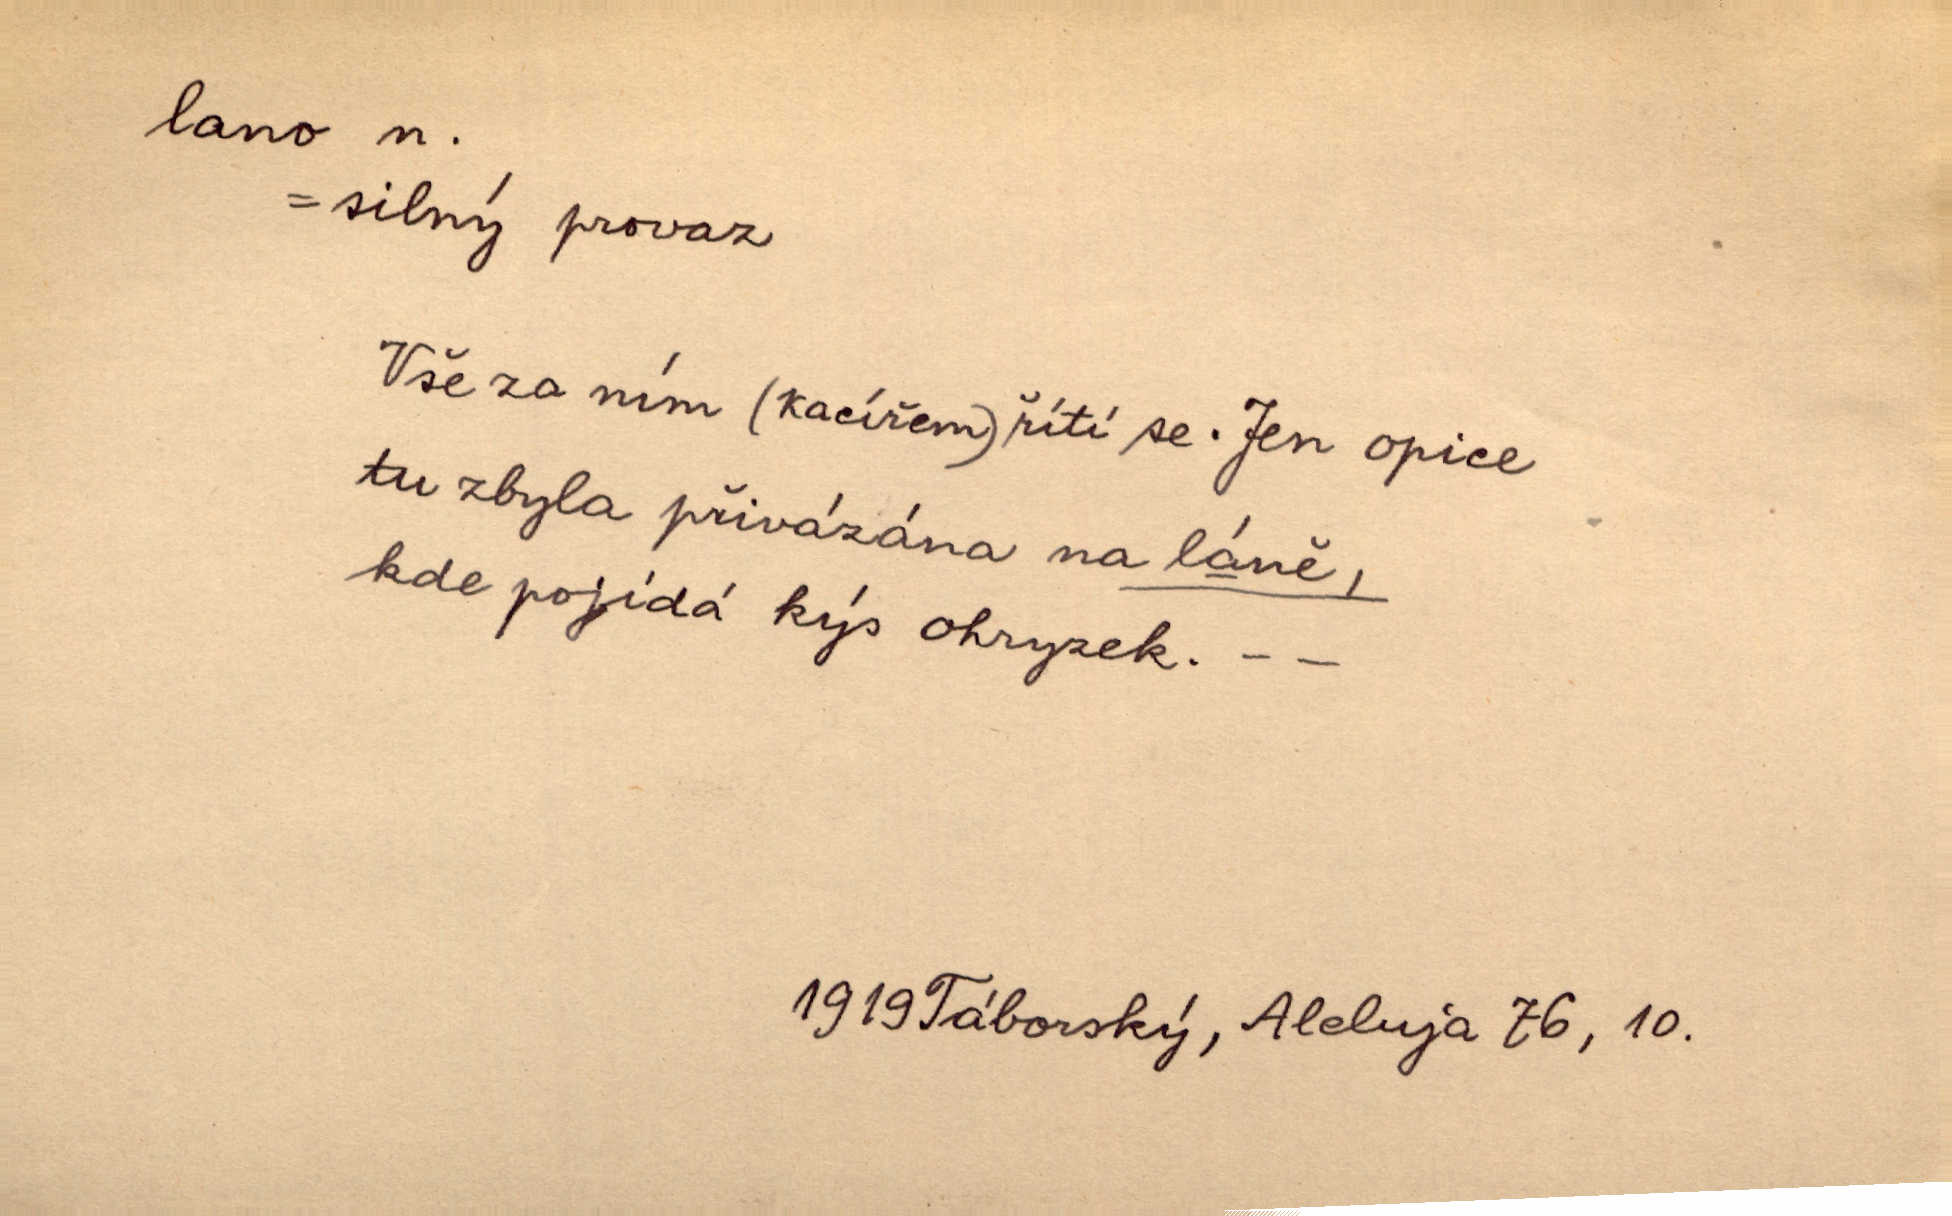 lano n.
= silný provaz
Vše za ním (kacířem) řítí se. Jen opice
tu zbyla přivázána na láně,
kde pojídá kýs ohryzek. – –
1919 Táborský, Aleluja 76, 10.